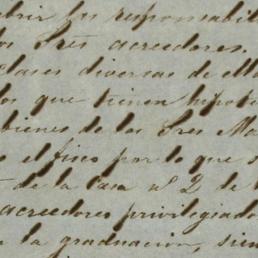 cubrir las responsabili
los tres acreedores.
clases diversas de ello
los que tienen hipote
bienes de los Tres Ma
el fisco por lo que s
de la Casa nº 2 de
acreedores privilegiado
la graduacion, sien